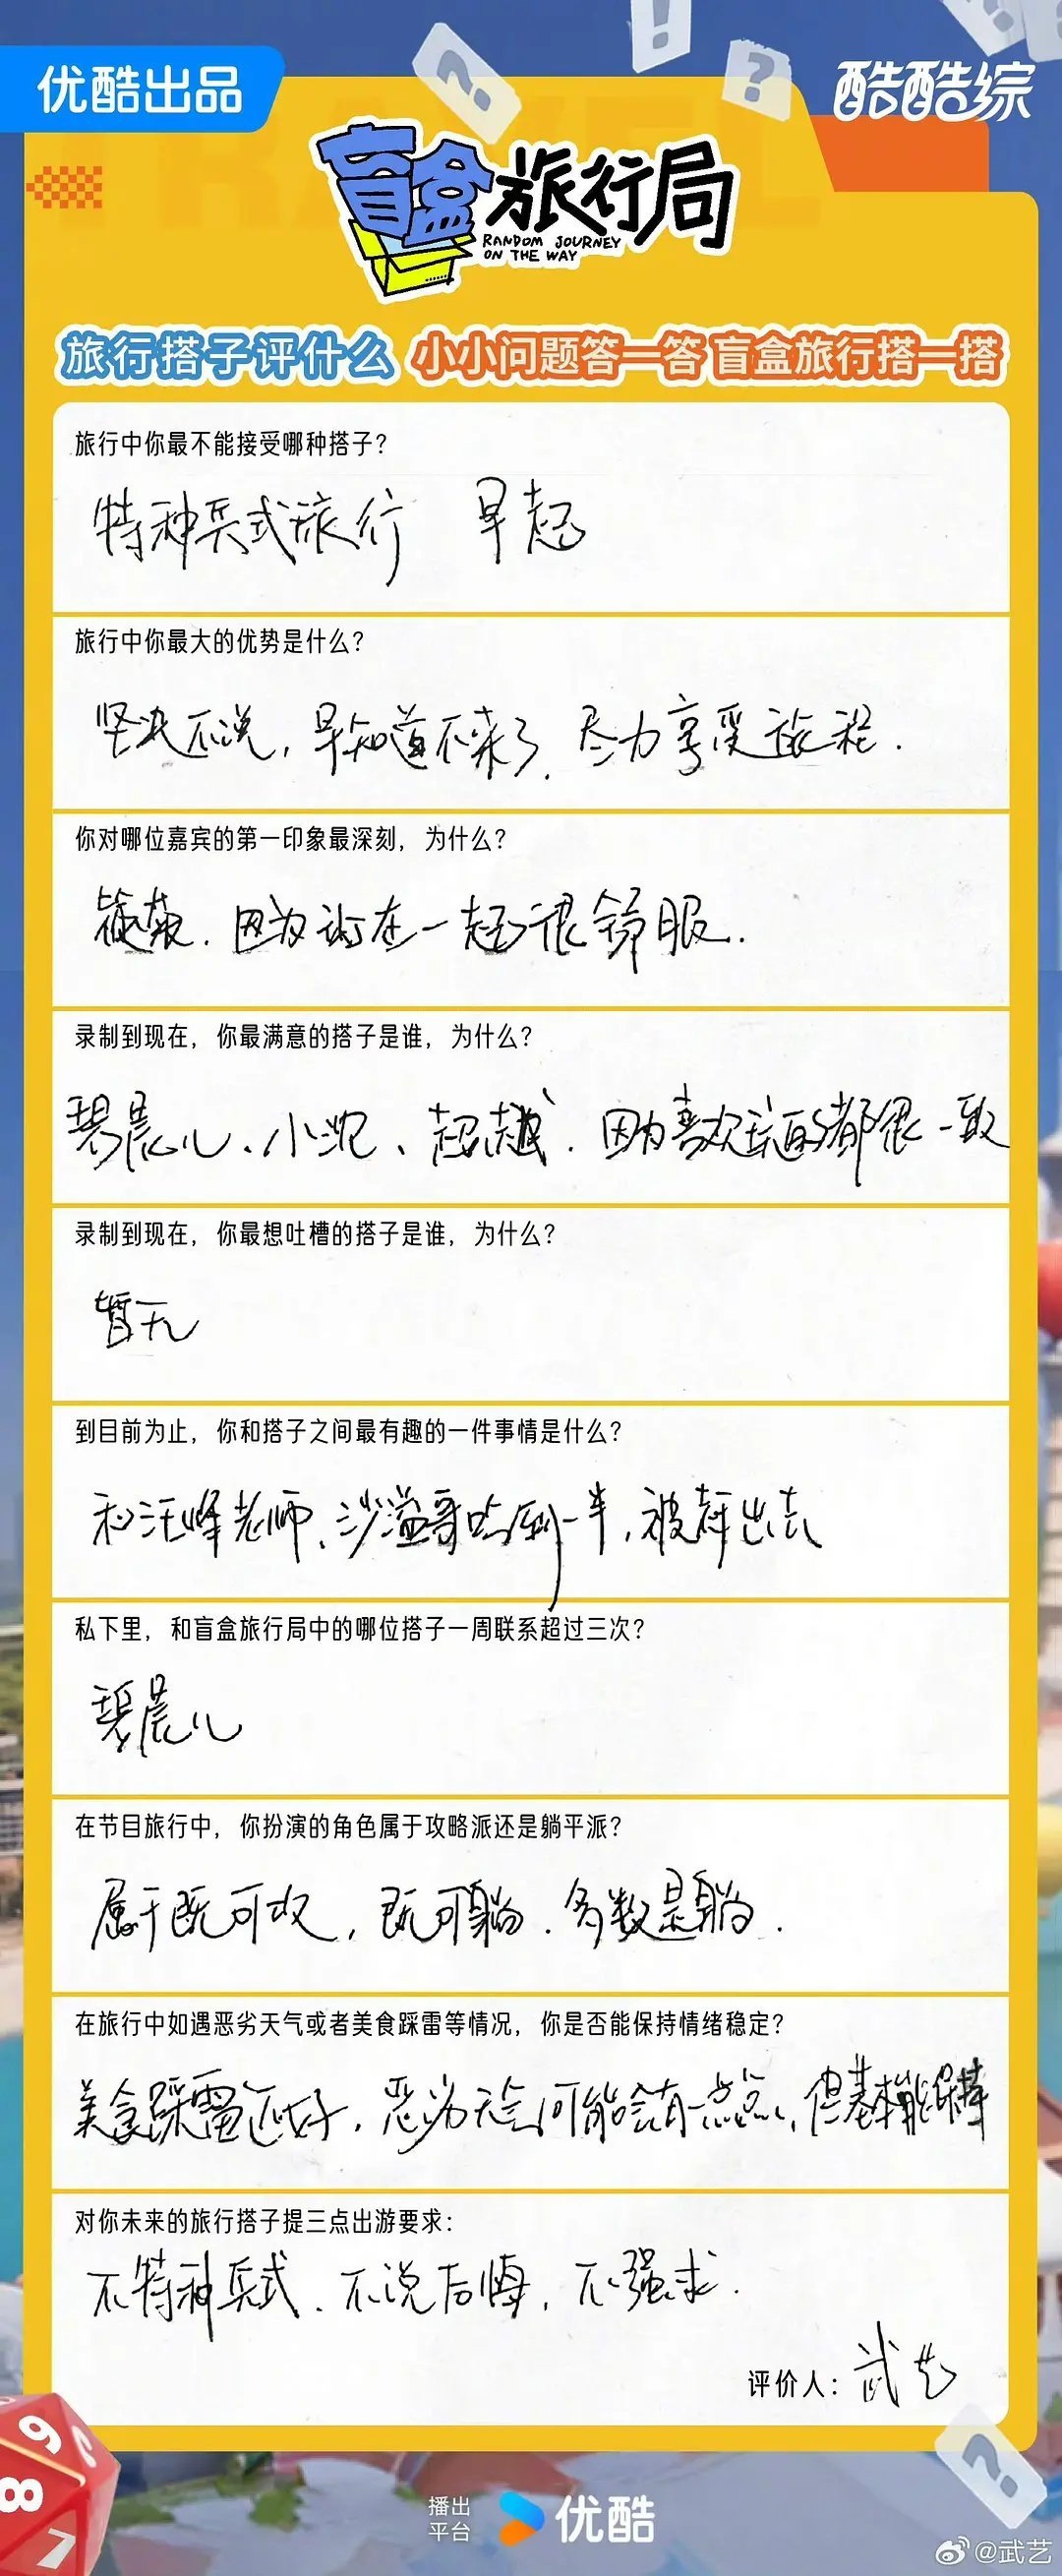 优酷出品
酷酷综
盲盒旅行局
RANDOM JOURNEY
ON THE WAY
旅行搭子评什么 小小问题答一答 盲盒旅行搭一搭
旅行中你最不能接受哪种搭子?
特种兵式旅行 早起
旅行中你最大的优势是什么?
坚决不说,早知道不来了.尽力享受旅程.
你对哪位嘉宾的第一印象最深刻,为什么?
筱薇.因为说在一起很舒服.
录制到现在,你最满意的搭子是谁,为什么?
碧晨儿、小沈、超越.因为喜欢玩的都很一致
录制到现在,你最想吐槽的搭子是谁,为什么?
暂无
到目前为止,你和搭子之间最有趣的一件事情是什么?
和汪峰老师、沙溢哥吃到一半,被轰出去
私下里,和盲盒旅行局中的哪位搭子一周联系超过三次?
碧晨儿
在节目旅行中,你扮演的角色属于攻略派还是躺平派?
属于既可攻,既可躺.多数是躺.
在旅行中如遇恶劣天气或者美食踩雷等情况,你是否能保持情绪稳定?
美食踩雷还好,恶劣天气可能会有一点点,但基本能保持
对你未来的旅行搭子提三点出游要求:
不特种兵式.不说后悔,不强求.
评价人:武艺
9
8
7
播出
平台
优酷
@武艺